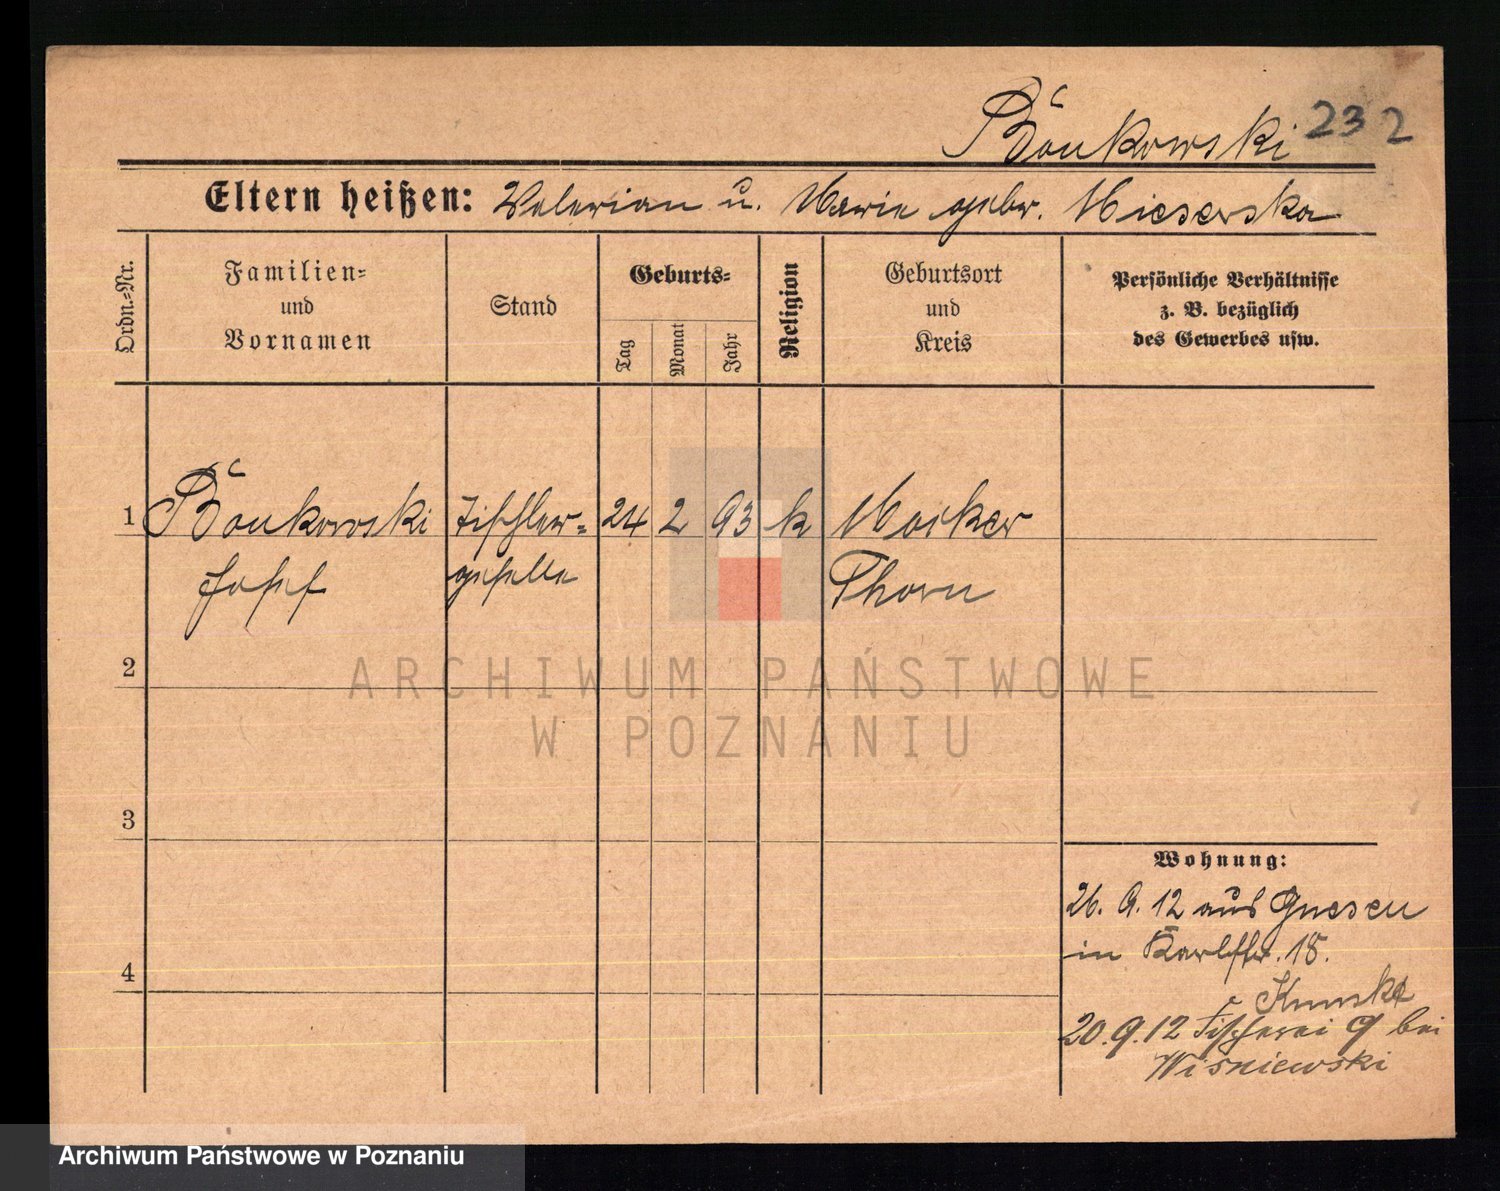 Bońkowski 232
Eltern heißen: Valerian u. Marie gebr.
Ordn.=Nr.
Familien=
und
Vornamen
Stand
Geburts=
Tag
Monat
Jahr
Religion
Geburtsort
und
Kreis
Persönliche Verhältnisse
z. B. bezüglich
des Gewerbes usw.
1 Bońkowski Tischler= 24 2 93 k Mocker
Josef geselle Thorn
2
3
4
Wohnung:
26. 9. 12 aus Gnesen
in Karlstr. 18.
20. 9. 12 Fischerei 9 bei
Wiśniewski
ARCHIWUM PAŃSTWOWE
W POZNANIU
Archiwum Państwowe w Poznaniu